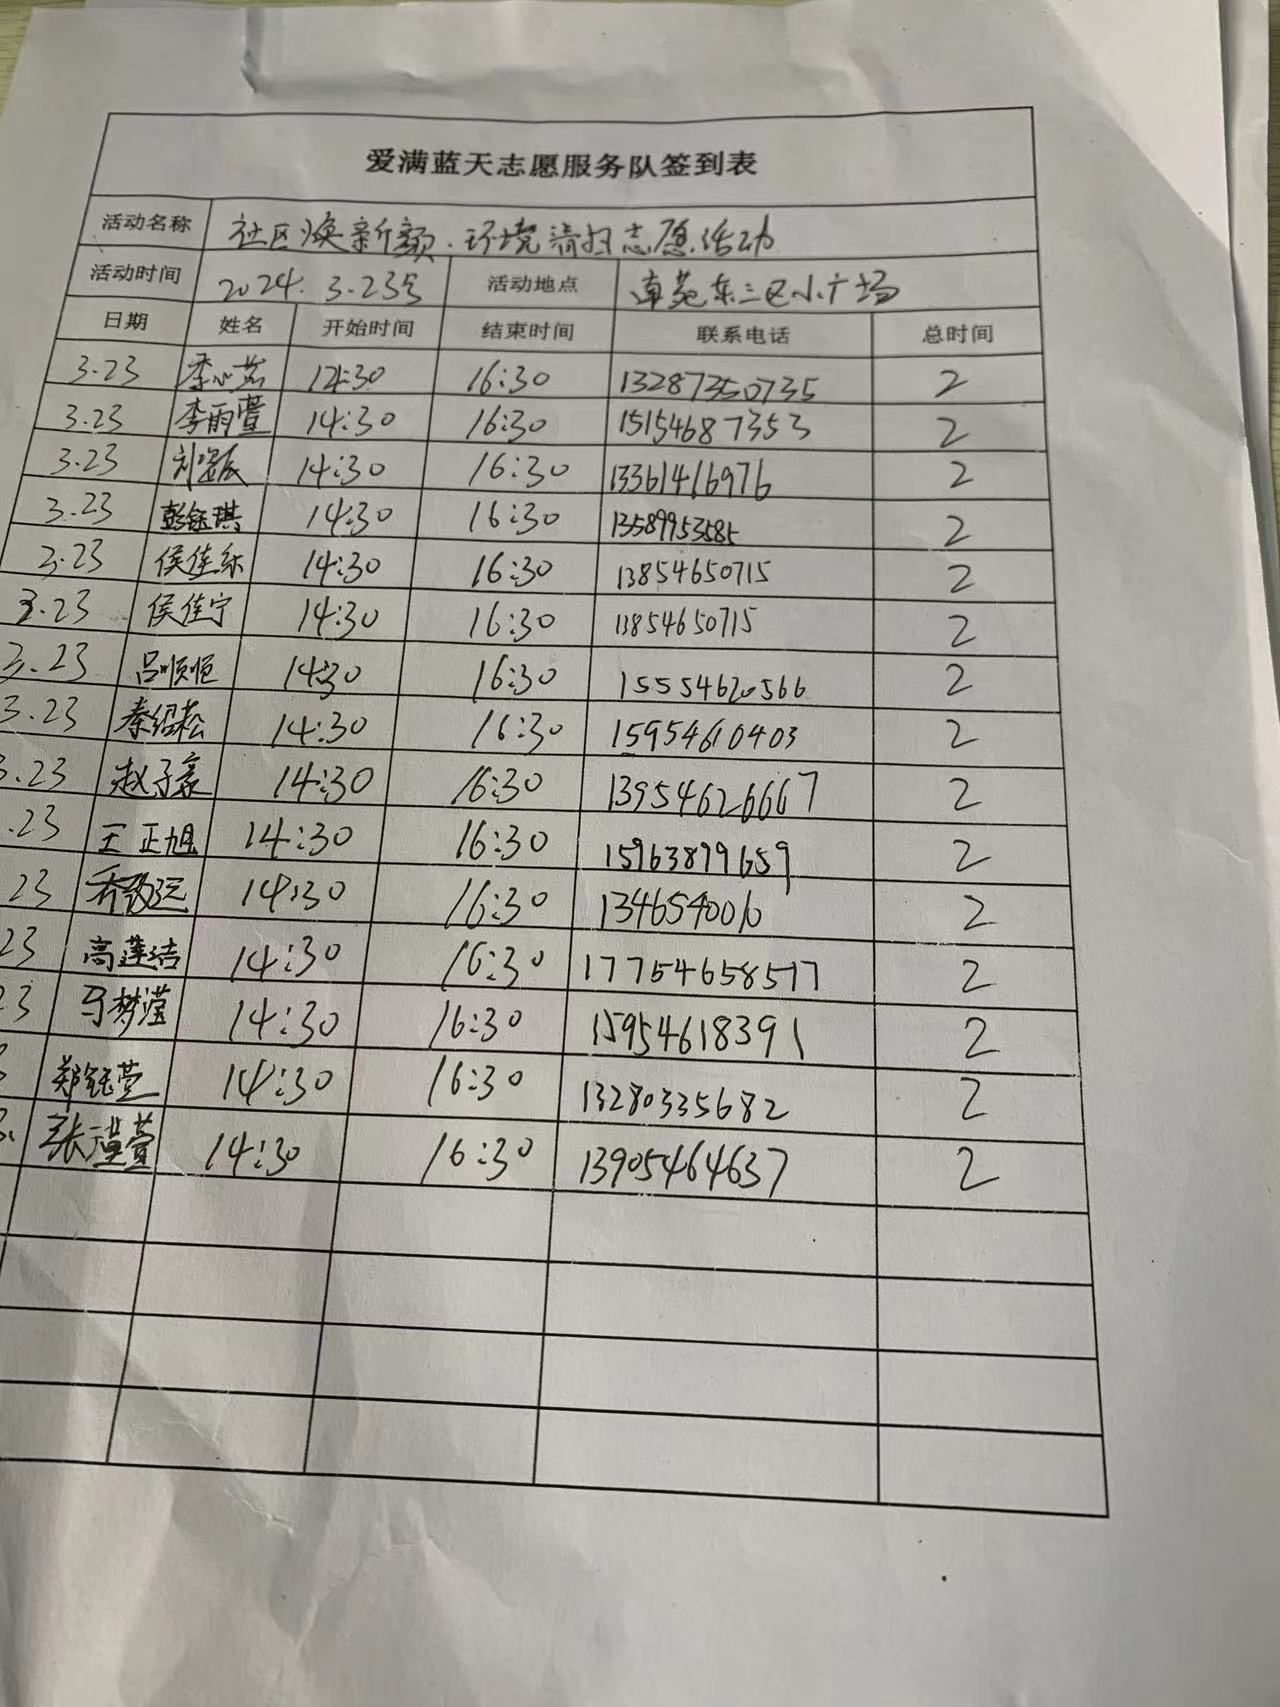 爱满蓝天志愿服务队签到表
活动名称 社区焕新颜.环境清扫志愿活动
活动时间 2024.3.23号 活动地点 南苑东三区小广场
日期 姓名 开始时间 结束时间 联系电话 总时间
3.23 李心茹 14:30 16:30 13287350735 2
3.23 李雨萱 14:30 16:30 15154687353 2
3.23 刘 14:30 16:30 13361416976 2
3.23 彭钰琪 14:30 16:30 13589953585 2
3.23 侯佳乐 14:30 16:30 13854650715 2
3.23 侯佳宁 14:30 16:30 13854650715 2
3.23 吕顺恒 14:30 16:30 15554620566 2
3.23 秦绍松 14:30 16:30 15954610403 2
3.23 赵子豪 14:30 16:30 13954626667 2
.23 王正旭 14:30 16:30 15963899659 2
23 乔致远 14:30 16:30 2
23 高莲洁 14:30 16:30 17754658517 2
23 马梦滢 14:30 16:30 15954618391 2
3 郑钰萱 14:30 16:30 13280335682 2
3. 张瑾萱 14:30 16:30 13905464637 2